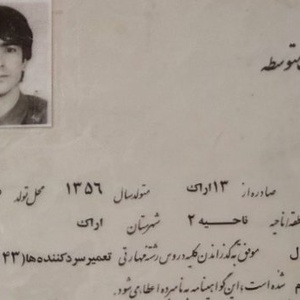 متوسطه
صادره از ۱۳ اراک متولد سال ۱۳۵۶ محل تولد
ناحیه ۲ شهرستان اراک
موفق به گذراندن کلیه دروس رشته مهارتی تعمیر سردکننده‌ها (۴۳
شده است، این گواهینامه به نامبرده اعطا می‌شود.